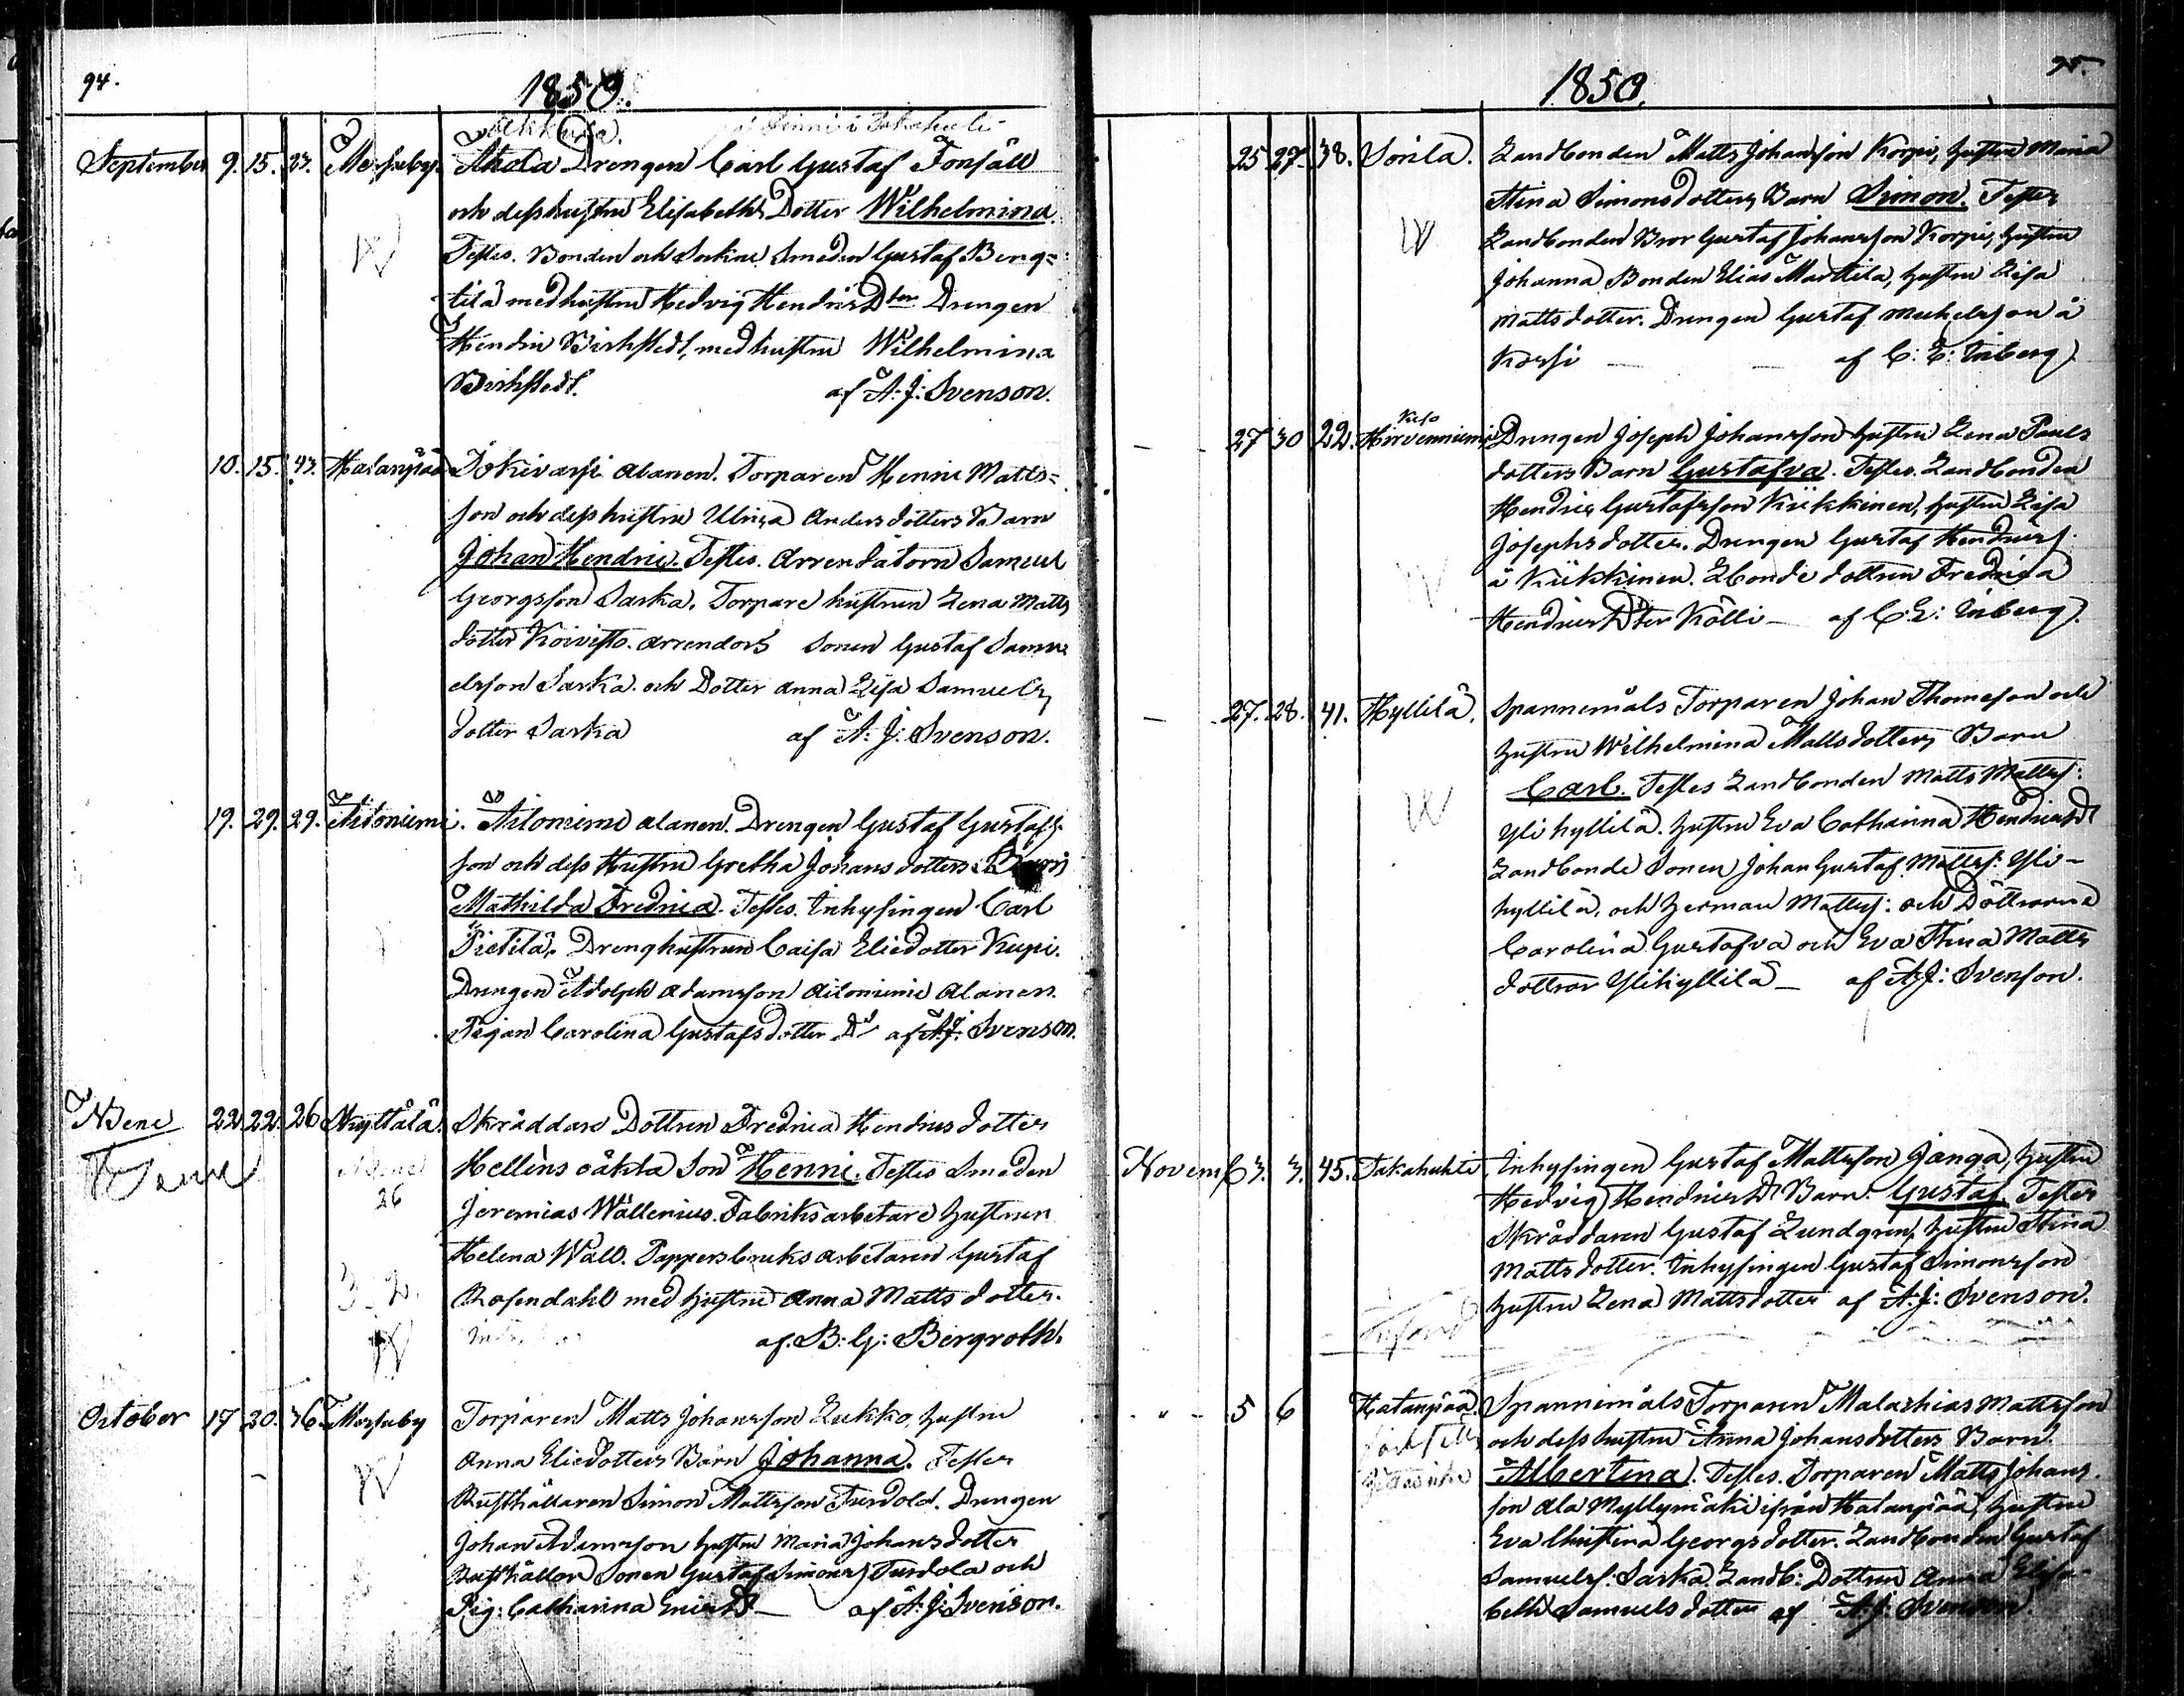 94.
1850.
September 9. 15. 23. Messuby. Ahola Drengen Carl Gustaf Tonfält
och dess hustru Elisabeths Dotter Wilhelmina.
Testes. Bonden och Sockne Smeden Gustaf Beng=
tilä med hustru Hedvig Hendrics Dter Drengen
Hendric Birkstedt, med hustru Wilhelmina
Birkstedt. af A. J: Svenson.
10. 15. 43. Hatanpää Jokivarsi alanen. Torparen Henric Matts=
son och dess hustru Ulrica Anders dotters Barn
Johan Hendric. Testes. Arrendatorn Samuel
Georgsson Saska. Torpare hustrun Lena Matts
dotter Koivisto. arrendors sonen Gustaf Samu
elsson Saska. och Dotter Anna Lisa Samuels
dotter Saska af A. J: Svenson.
19. 29. 29. Aitoniemi. Aitoniemi alanen. Drengen Gustaf Gustafs
son och dess Hustru Gretha Johans dotters Barn
Mathilda Fredrica. Testes. Inhysingen Carl
Pietilä. Drenghustrun Caisa Eliedotter Kupi.
Drengen Adolph Adamsson Aitoniemi Alanen.
Pigan Carolina Gustafs dotter Do af A. J: Svenson.
NBene 22. 22. 26 Kyttälä. Skräddare Dottren Fredrica Hendrics dotter
Helléns oäkta Son Henric. Testes Smeden
26
Jeremias Wallenius. Fabriks arbetare Hustrun
Helena Wall. Pappersbruks arbetaren Gustaf
Rosendahl med hustru Anna Matts dotter.
af. B: G: Bergroth.
W
October 17 20. 36. Messuby Torparen Matts Johansson Lukko, hustru
Anna Eliedotters Barn Johanna. Testes
W
Rusthållaren Simon Mattsson Turdola. Drengen
Johan Adamsson hustru Maria Johans dotter
Rusthållar Sonen Gustaf Simons: Turdola och
Pig: Catharina af A: J: Svenson.
95.
1850.
25 27. 38. Sorila. Landbonden Matts Johansson Korpi, hustru Maria
Stina Simonsdotters Barn Simon. Testes
W
Landbonden Bror Gustaf Johansson Korpi, hustru
Johanna Bonden Elias Marttila, hustru Lisa
Matts dotter. Drengen Gustaf Michelsson å
Korpi af C: E: Inberg.
27 30 22. Hirvenniemi Drengen Joseph Johansson hustru Lena Pauls
dotters Barn Gustafva. Testes. Landbonden
Hendric Gustafsson Kiikkinen, hustru Lisa
Josephs dotter. Drengen Gustaf Hendricss.
å Kiikkinen. Lbonde dottren Fredrica
Hendrics Dter Kölli af C. E: Inberg.
27. 28. 41. Hyllilä. Spannemåls Torparen Johan Thomeson och
hustru Wilhelmina Mattsdotters Barn
Carl. Testes Landbonden Matts Mattss:
W
Yli hyllilä. hustru Eva Catharina Hendricsdr
Landbonde Sonen Johan Gustaf Mattss: Yli-
hyllilä, och Herman Mattss: och Döttrarna
Carolina Gustafva och Eva Stina Matts
döttrar Ylihyllilä af A. J: Svenson.
Novemb 3. 3. 45. Takahuhti Inhysingen Gustaf Mattsson Janga, hustru
Hedvig Hendrics Dr Barn. Gustaf. Testes
Skräddaren Gustaf Lundgren, hustru Stina
Matts dotter. Inhysingen Gustaf Simonsson
hustru Lena Mattsdotter af A. J: Svenson.
5 6 Hatanpää. Spannemåls Torparen Malachias Mattsson
och dess hustru Anna Johansdotters Barn.
Albertina. Testes. Torparen Matts Johans
son Ala Myllymäki ifrån Hatanpää, hustru
Eva Christina Georgs dotter. Landbonden Gustaf
Samuelss: Saska. Landb: Dottren Anna Elisa-
beth Samuels dotter af A. J: Svenson.